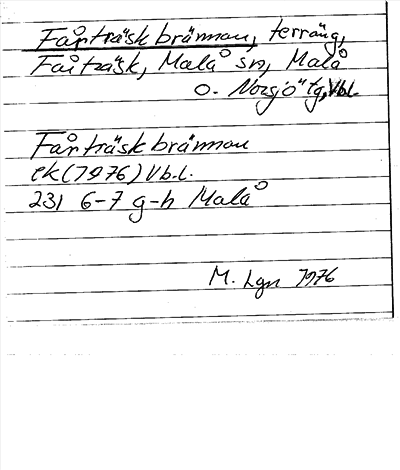 Fårträskbrännan, terräng,
Fårträsk, Malå sn, Malå
o. Norsjö tg, Vbl.
Fårträskbrännan
ek (1976) Vb.l.
231 6-7 g-h Malå
M. Lgn 1976